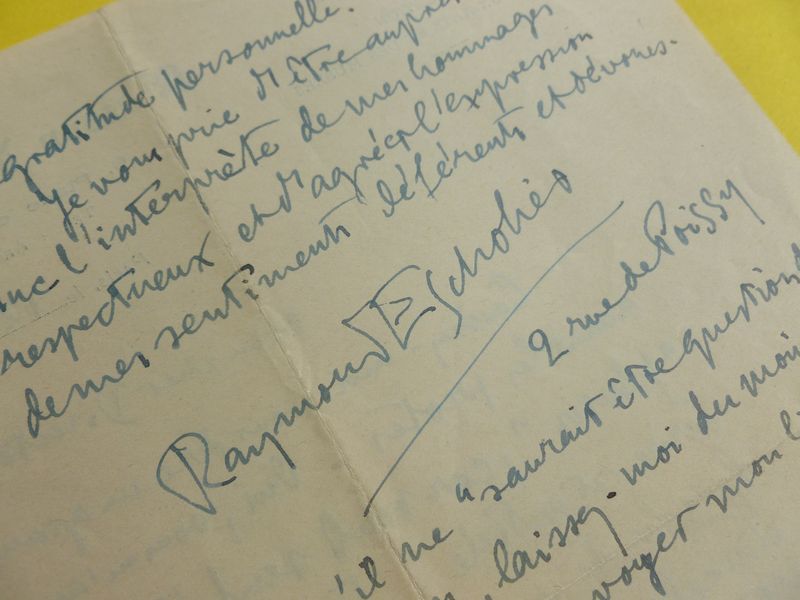 gratitude personnelle.
Je vous prie d'être auprès
l'interprète de mes hommages
respectueux et d'agréer l'expression
de mes sentiments déférents et dévoués.
Raymond Escholier
2 rue de Poissy
il ne "saurait être question
laissez-moi du moins
voyer mon